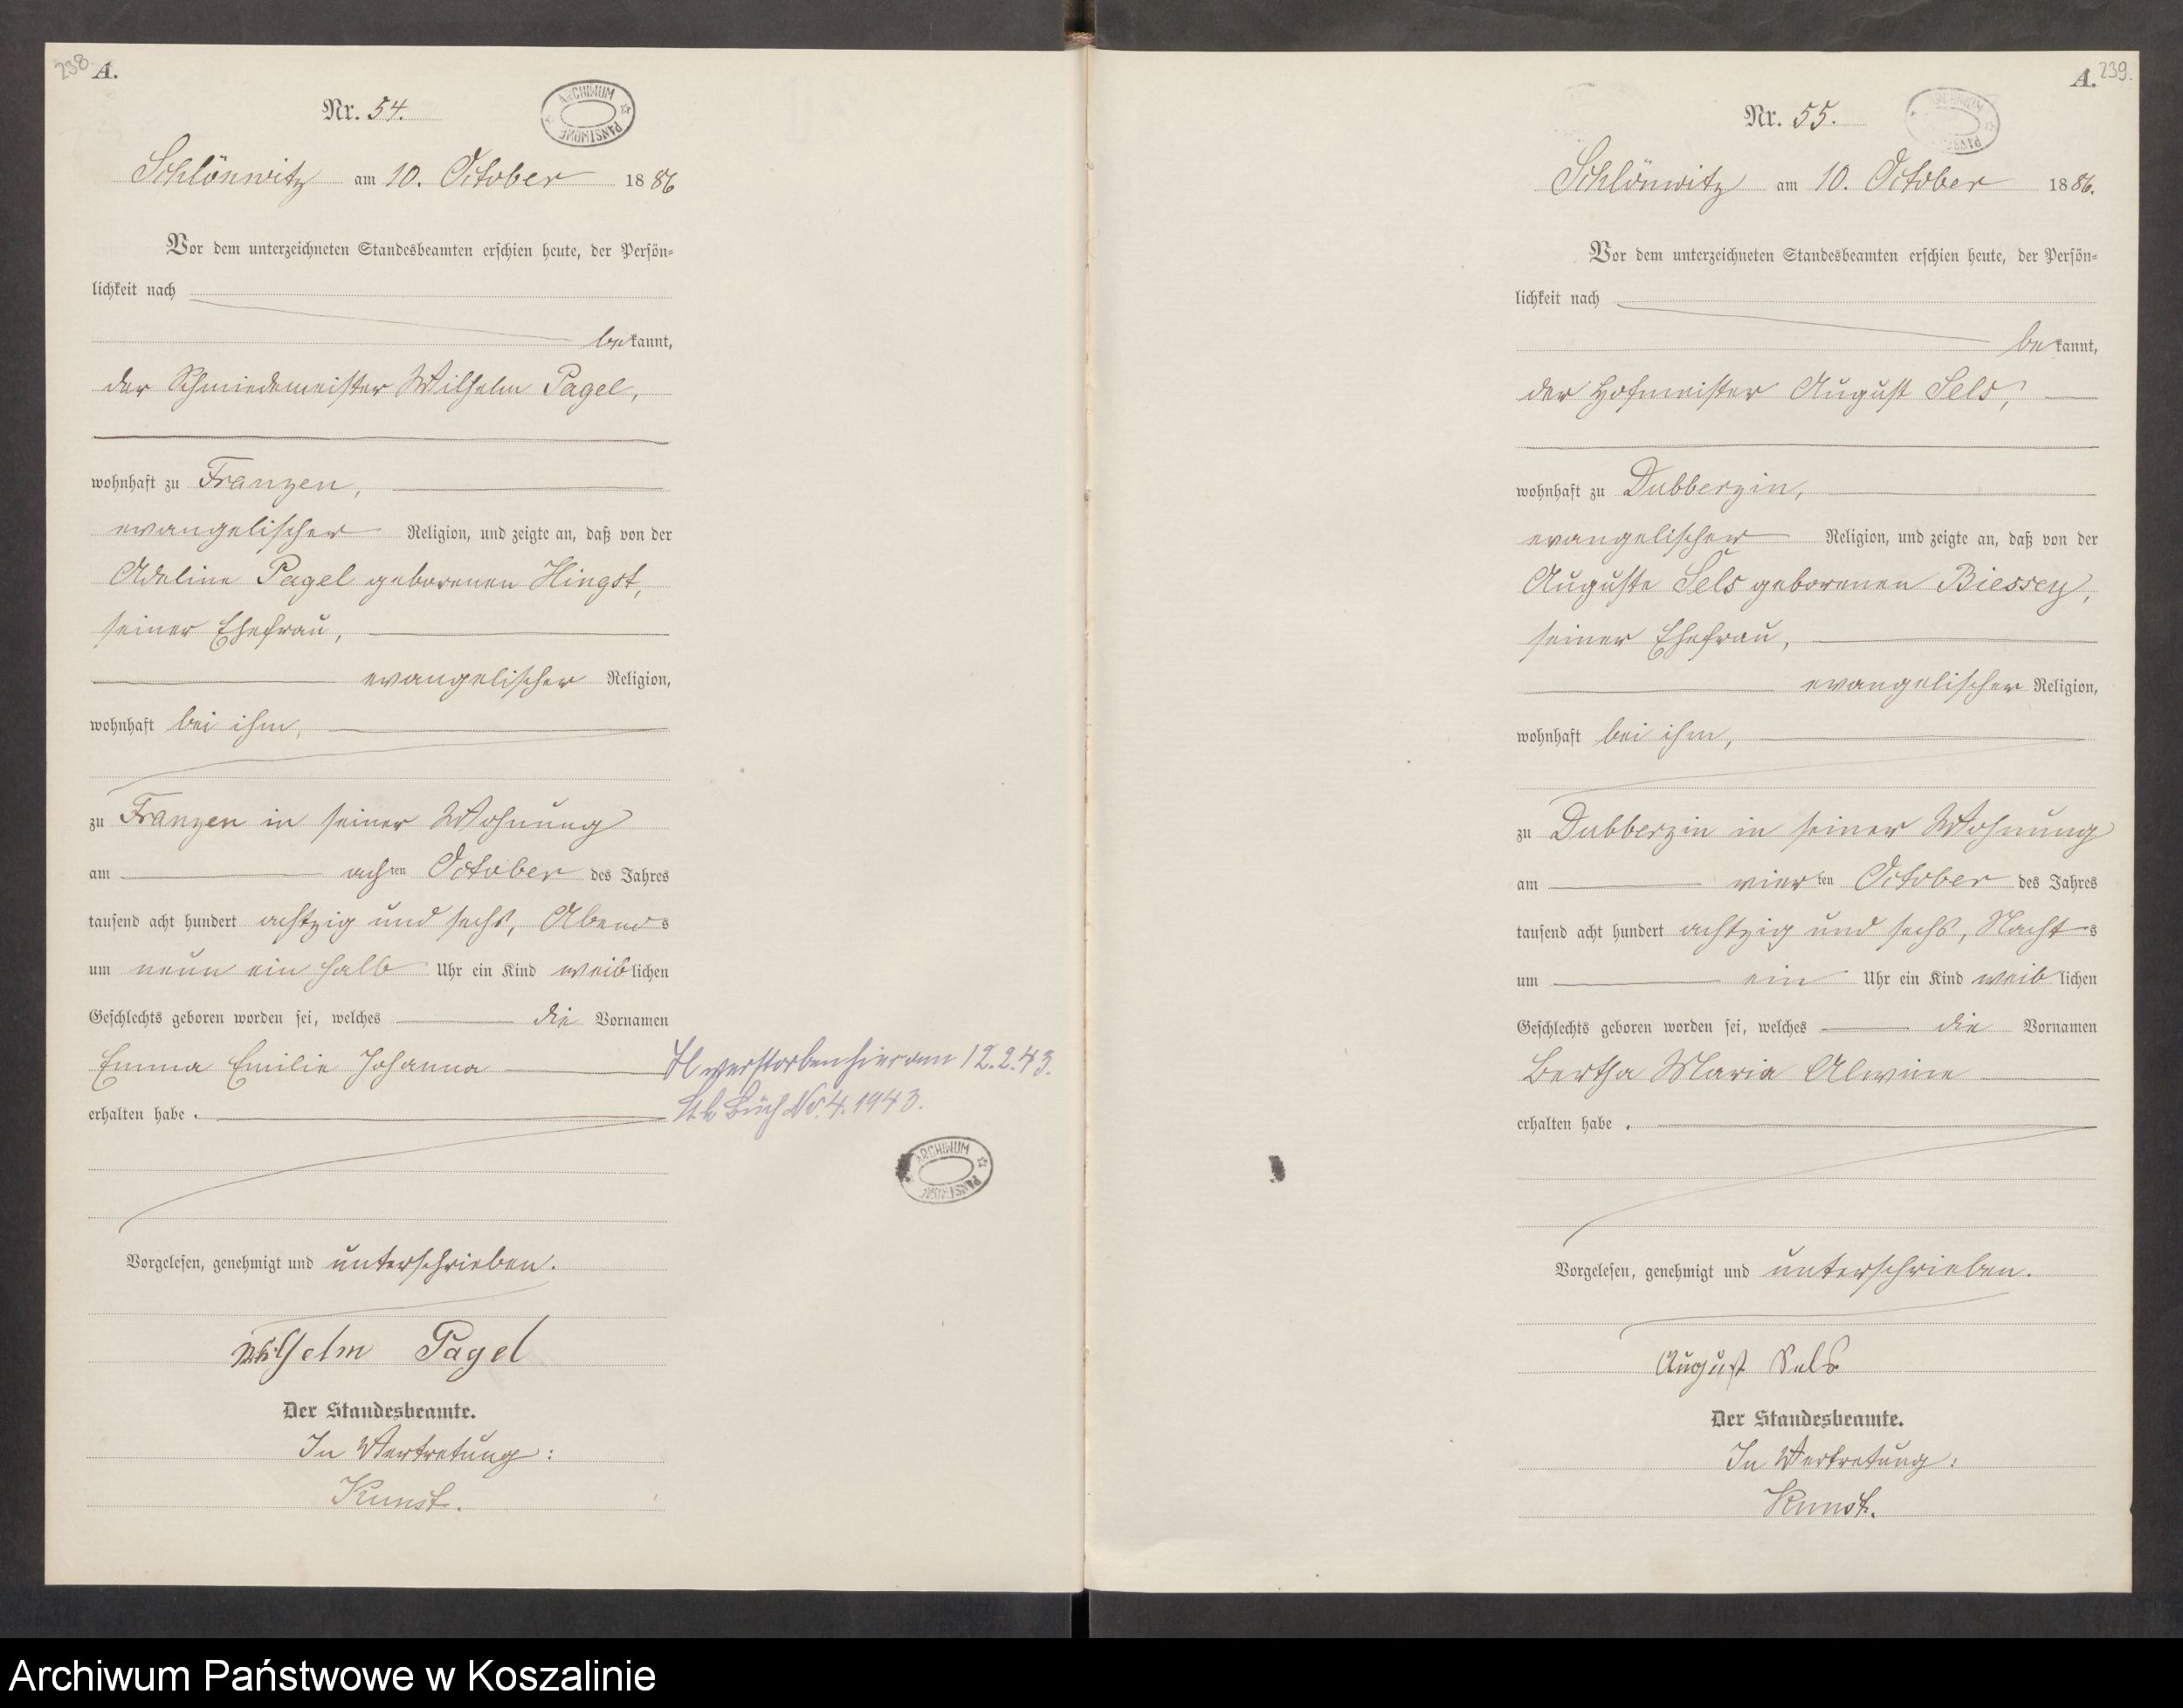 238.
A.
Nr. 54.
ARCHIWUM PAŃSTWOWE
Schlönwitz am 10. October 1886
Vor dem unterzeichneten Standesbeamten erschien heute, der Persön=
lichkeit nach
bekannt,
der Schmiedemeister Wilhelm Pagel,
wohnhaft zu Franzen,
evangelischer Religion, und zeigte an, daß von der
Adeline Pagel geborenen Hingst,
seiner Ehefrau,
evangelischer Religion,
wohnhaft bei ihm,
zu Franzen in seiner Wohnung
am achten October des Jahres
tausend acht hundert achtzig und sechs, Abends
um neun ein halb Uhr ein Kind weiblichen
Geschlechts geboren worden sei, welches die Vornamen
Emma Emilie Johanna
erhalten habe.
verstorben hier am 12.2.43.
Buch No. 4. 1943.
ARCHIWUM PAŃSTWOWE
Vorgelesen, genehmigt und unterschrieben.
Wilhelm Pagel
Der Standesbeamte.
In Vertretung:
Kunst.
A. 239.
Nr. 55.
ARCHIWUM PAŃSTWOWE
Schlönwitz am 10. October 1886.
Vor dem unterzeichneten Standesbeamten erschien heute, der Persön=
lichkeit nach
bekannt,
der Hofmeister August Sels,
wohnhaft zu Dubberzin,
evangelischer Religion, und zeigte an, daß von der
Auguste Sels geborenen Biessey,
seiner Ehefrau,
evangelischer Religion,
wohnhaft bei ihm,
zu Dubberzin in seiner Wohnung
am vierten October des Jahres
tausend acht hundert achtzig und sechs, Nachts
um ein Uhr ein Kind weiblichen
Geschlechts geboren worden sei, welches die Vornamen
Bertha Maria Alwine
erhalten habe.
Vorgelesen, genehmigt und unterschrieben.
August Sels
Der Standesbeamte.
In Vertretung:
Kunst.
Archiwum Państwowe w Koszalinie